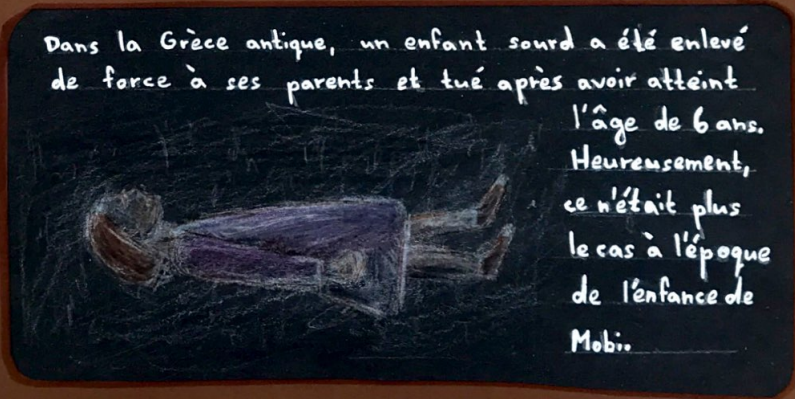 Dans la Grèce antique, un enfant sourd a été enlevé
de force à ses parents et tué après avoir atteint
l'âge de 6 ans.
Heureusement,
ce n'était plus
le cas à l'époque
de l'enfance de
Mobi.